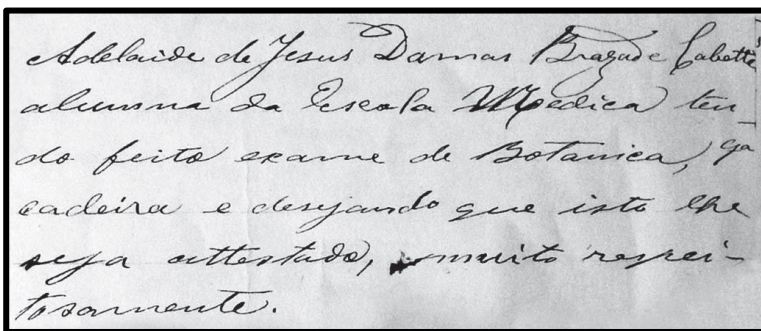 Adelaide de Jesus Damas Brazão e Cabette
alumna da Escola Medica ten-
do feito exame de Botanica, 9a
cadeira e desejando que isto lhe
seja attestado, muito respei-
tosamente.